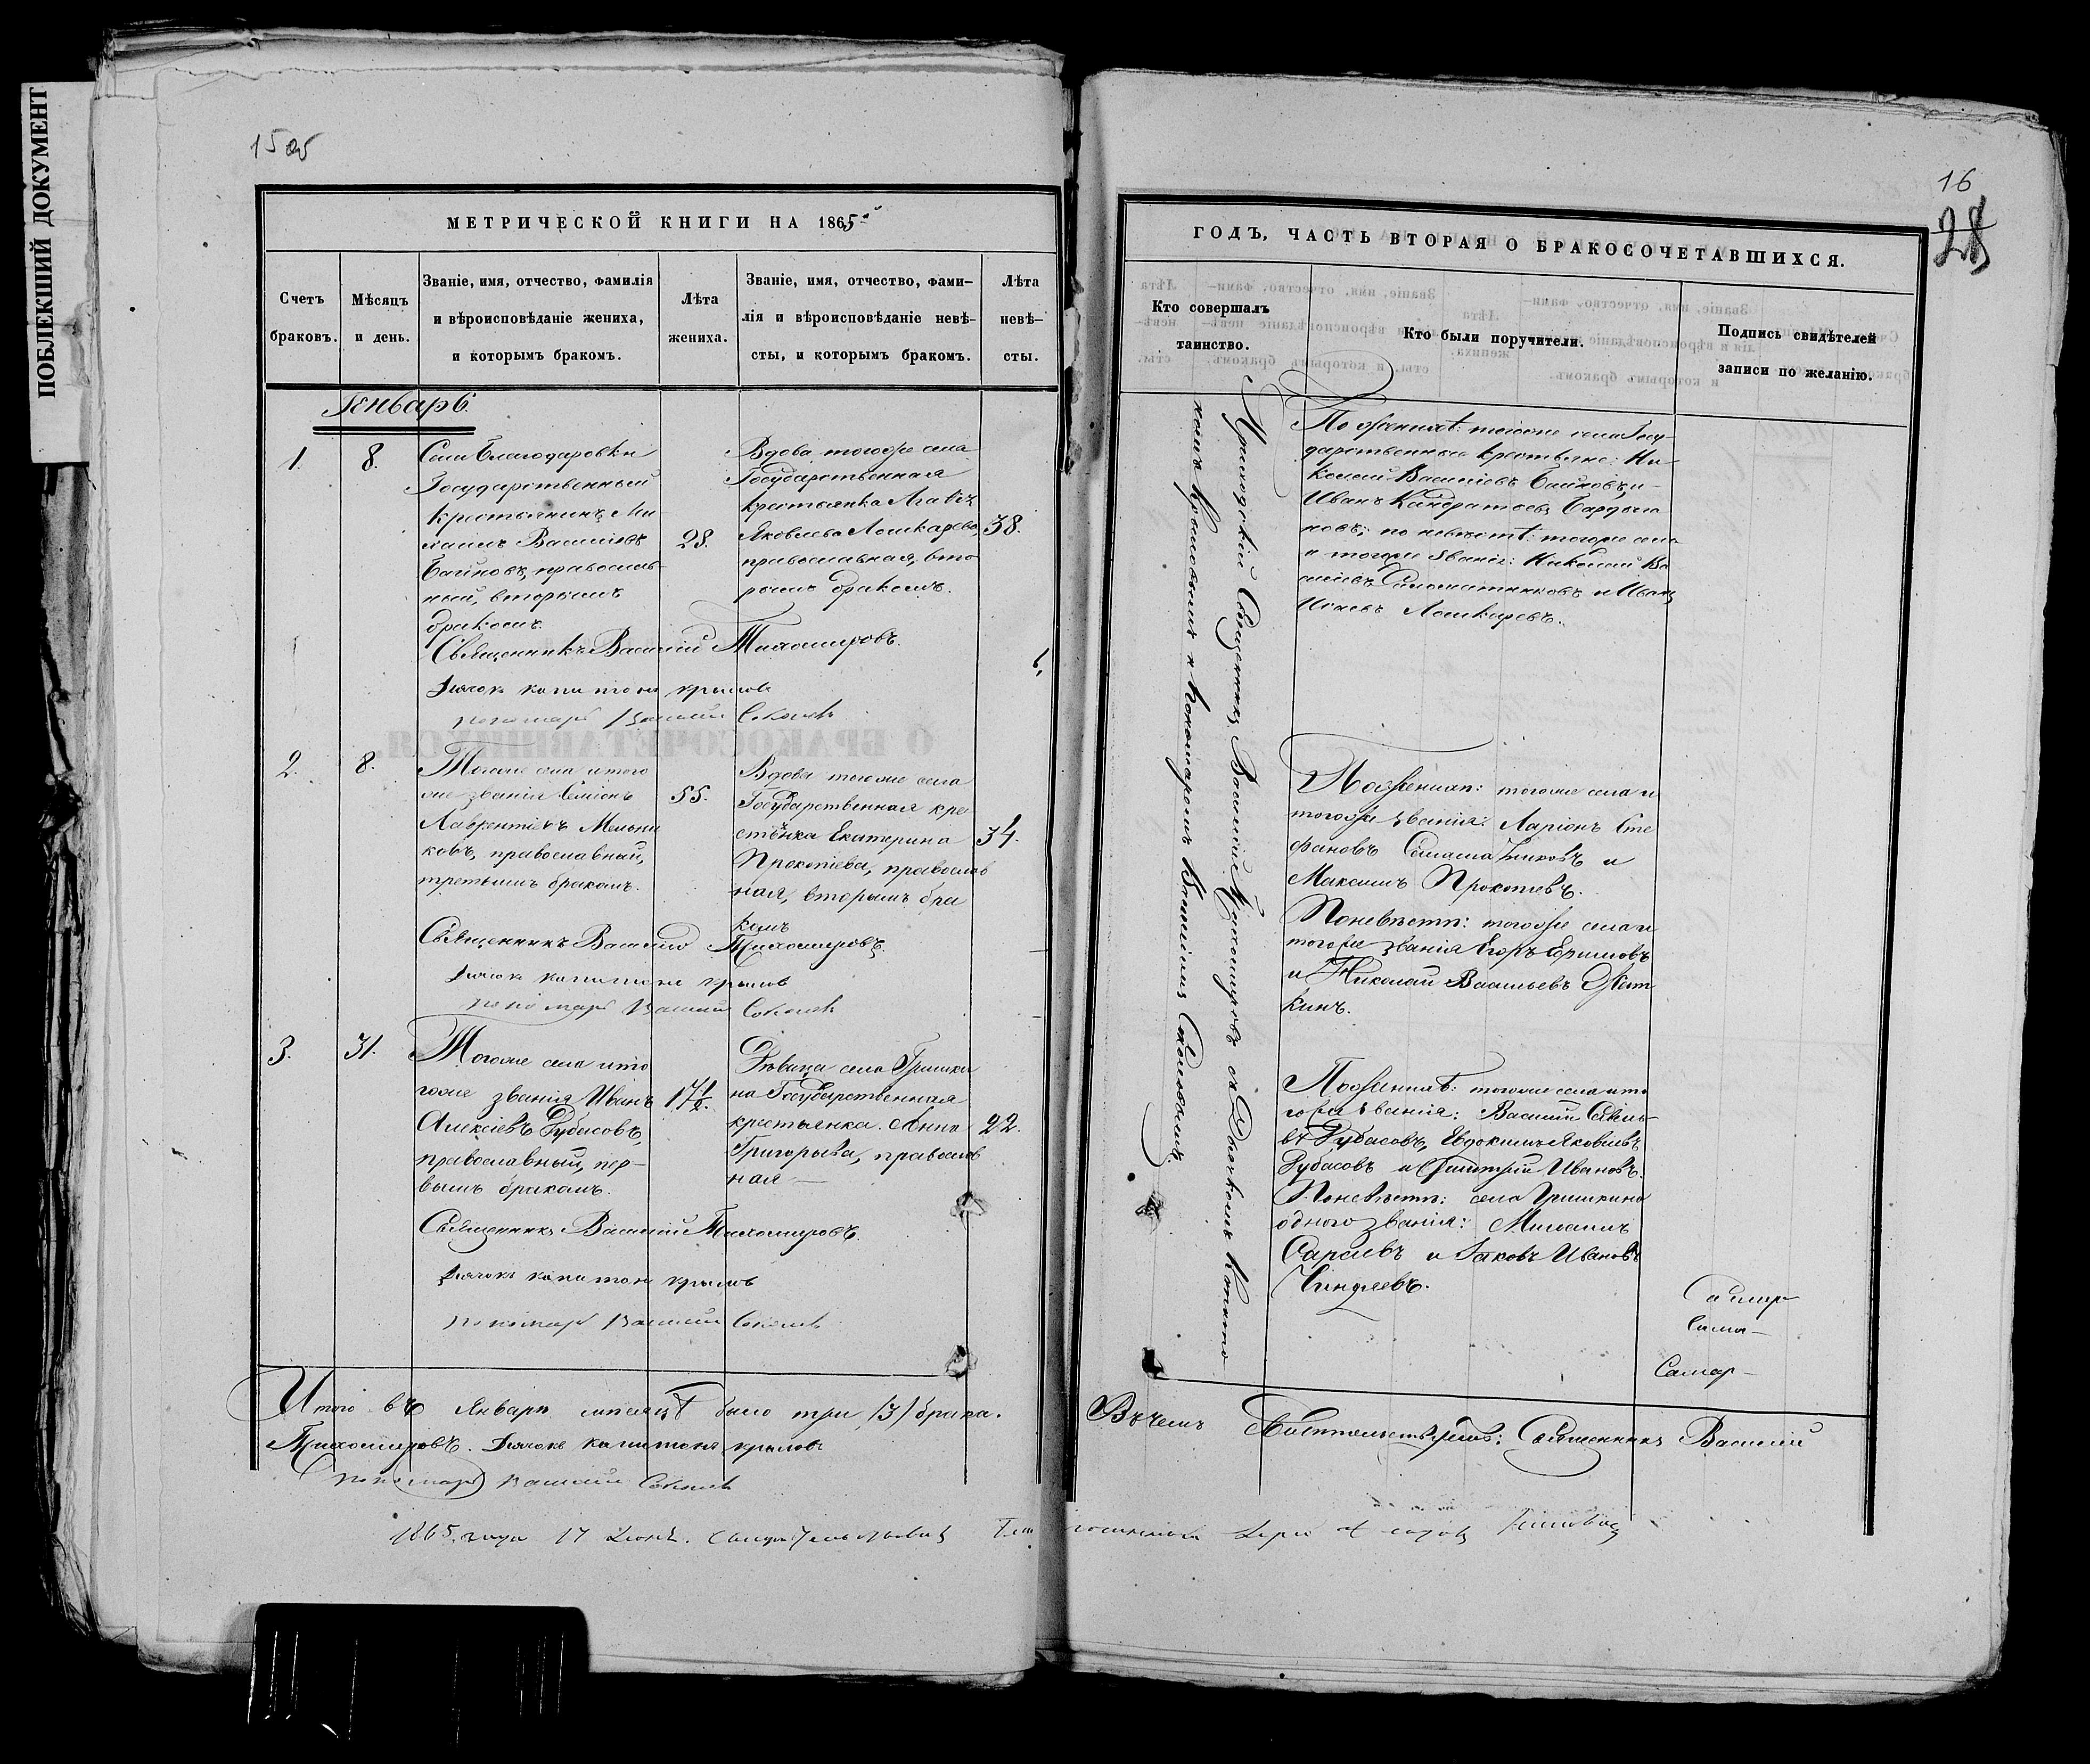 ПОБЛЕКШИЙ ДОКУМЕНТ
15 об
МЕТРИЧЕСКОЙ КНИГИ НА 1865
Счетъ браковъ.
Мѣсяцъ и день.
Званіе, имя, отчество, фамилія
и вѣроисповѣданіе жениха,
и которымъ бракомъ.
Лѣта жениха.
Званіе, имя, отчество, фами-
лія и вѣроисповѣданіе невѣ-
сты, и которымъ бракомъ.
Лѣта невѣ-
сты.
Генварь.
1.
8.
Села Благодаровки
Государственный
крестьянинъ Ми
хаилъ Василіевъ
Баиновъ, православ-
ный, вторымъ
бракомъ.
28.
Вдова тогоже села
Государственная
крестьянка
Яковлева Лошкарева,
православная, вто
рымъ бракомъ.
38.
Священникъ Василій Тихомировъ.
Дьячокъ Капитонъ Крыловъ
Пономарь Василій Соколовъ
2.
8.
Тогоже села итого
же званія Симіонъ
Лаврентіевъ Мельни
ковъ, православный,
третьимъ бракомъ.
55.
Вдова тогоже села
Государственная кре
стьянка Екатерина
Прокопіева, православ
ная, вторымъ бра
комъ
34.
Священникъ Василій Тихомировъ.
Дьячокъ Капитонъ Крыловъ
Пономарь Василій Соколовъ
3.
31.
Тогоже села ито
гоже званія Иванъ
Алексіевъ Губасовъ,
православный, пер-
вымъ бракомъ.
17 1/2.
Дѣвица села Гришки
на Государственная
крестьянка Анна
Григорьева, православ
ная —
22.
Священникъ Василій Тихомировъ.
Дьячокъ Капитонъ Крыловъ
Пономарь Василій Соколовъ
Итого въ Январѣ мѣсяцѣ было три /3/ брака.
Тихомировъ. Дьячокъ Капитонъ Крыловъ
Пономарь Василій Соколовъ
1865 года 17
16
28
ГОДЪ, ЧАСТЬ ВТОРАЯ О БРАКОСОЧЕТАВШИХСЯ.
Кто совершалъ
таинство.
Кто были поручители.
Подпись свидѣтелей
записи по желанію.
Приходскій Священникъ Василій Тихомировъ съ Дьячкомъ Капито
номъ Крыловымъ и Пономаремъ Василіемъ Соколовымъ.
По женихѣ: тогоже села Госу-
дарственные крестьяне: Ни-
колай Василіевъ Баиновъ, и
Иванъ Кандратьевъ
новъ; по невѣстѣ: тогоже села
и тогоже званія: Николай Ва
силіевъ и Иванъ
Исаевъ Лошкаревъ.
По женихѣ: тогоже села и
тогоже званія: Ларіонъ Сте
фановъ и
Максимъ Прокопіевъ.
По невѣстѣ: тогоже села и
тогоже званія Егоръ Ефимовъ
и Николай Васильевъ
кинъ.
По женихѣ: тогоже села ито
гоже званія: Василій Савель-
въ Губасовъ, Евдокимъ Яковлевъ
Губасовъ и Дмитрій Ивановъ.
По невѣстѣ: села Гришкина
одного званія: Михаилъ
и Яковъ Ивановъ
Чиндяевъ.
Самар
Сама—
Самар—
Въ чемъ свидѣтельствуетъ: Священникъ Василій